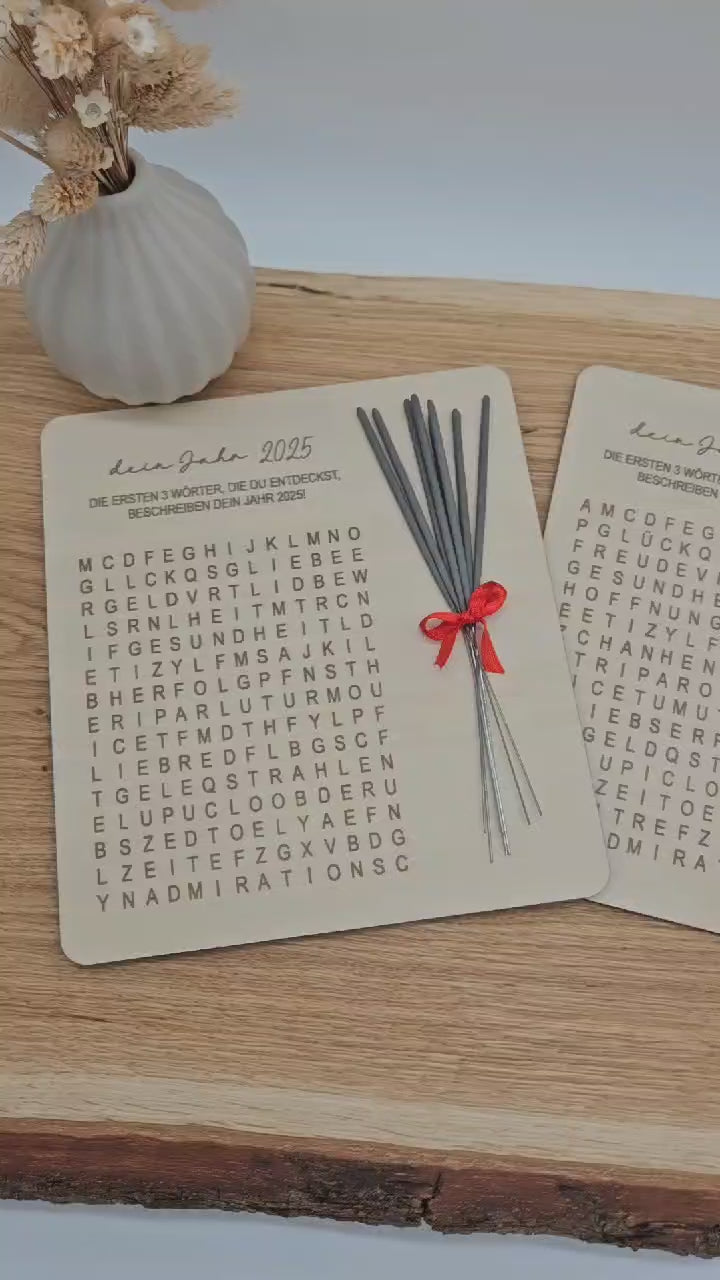 dein Jahr 2025
DIE ERSTEN 3 WÖRTER, DIE DU ENTDECKST,
BESCHREIBEN DEIN JAHR 2025!
M C D F E G H I J K L M N O
G L L C K Q S G L I E B E E
R G E L D V R T L I D B E W
L S R N L H E I T M T R C N
I F G E S U N D H E I T L D
E T I Z Y L F M S A J K I L
B H E R F O L G P F N S T H
E R I P A R L U T U R M O U
I C E T F M D T H F Y L P F
L I E B R E D F L B G S C F
T G E L E Q S T R A H L E N
E L U P U C L O O B D E R U
B S Z E D T O E L Y A E F N
L Z E I T E F Z G X V B D G
Y N A D M I R A T I O N S C
dein
DIE ERSTEN 3
BESCHREIBEN
A M C D F E G
P G L Ü C K Q
F R E U D E V
G E S U N D H E
H O F F N U N G
E E T I Z Y L F
C H A N H E N
T R I P A R O
I C E T U M U
I E B S E R F
G E L D Q S T
U P I C L O
Z E I T O E
T R E F Z
D M I R A